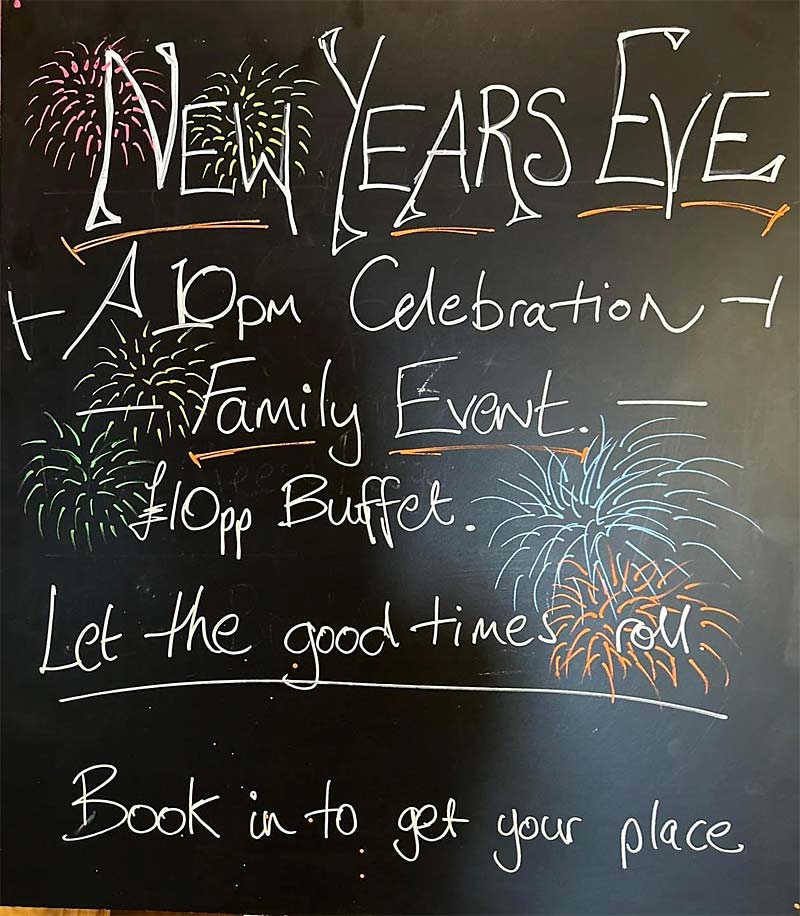 NEW YEARS EVE
A 10pm Celebration
Family Event.
£10pp Buffet.
Let the good times roll.
Book in to get your place